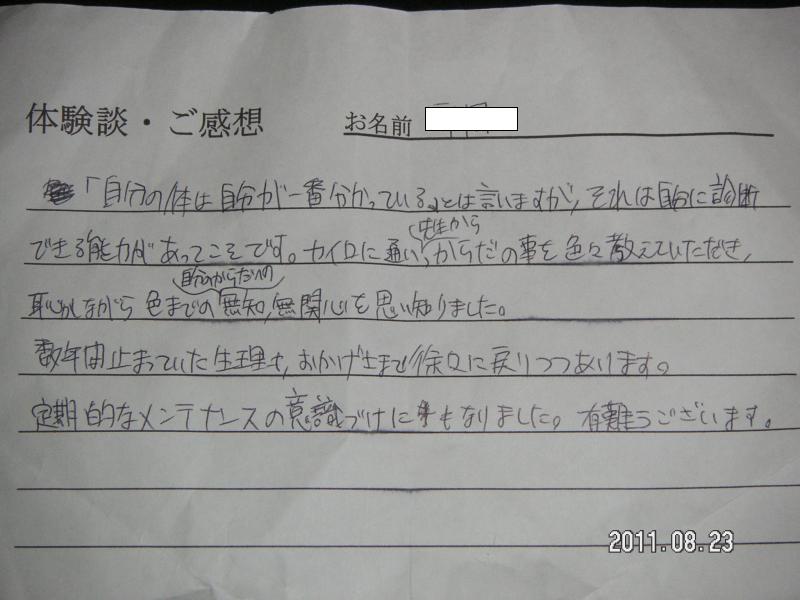 体験談・ご感想
お名前
「自分の体は自分が一番分かっている」とは言いますが、それは自分に診断
できる能力があってこそです。カイロに通い、先生からからだの事を色々教えていただき、
恥かしながら色までの自分のからだへの無知、無関心を思い知りました。
数年間止まっていた生理も、おかげさまで徐々に戻りつつあります。
定期的なメンテナンスの意識づけにもなりました。有難うございます。
2011.08.23